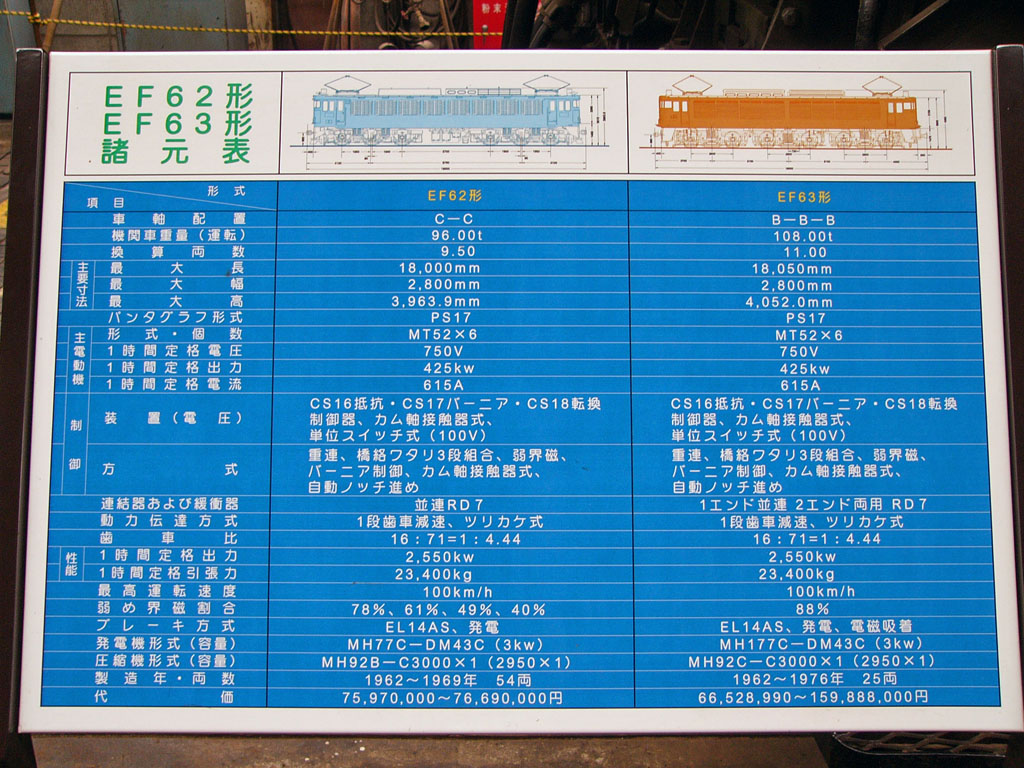 粉末
EF62形
EF63形
諸元表
形式
項目
EF62形
EF63形
車軸配置 C－C B－B－B
機関車重量（運転） 96.00t 108.00t
換算両数 9.50 11.00
主要寸法
最大長 18,000mm 18,050mm
最大幅 2,800mm 2,800mm
最大高 3,963.9mm 4,052.0mm
パンタグラフ形式 PS17 PS17
主電動機
形式・個数 MT52×6 MT52×6
1時間定格電圧 750V 750V
1時間定格出力 425kw 425kw
1時間定格電流 615A 615A
制御
装置（電圧）
CS16抵抗・CS17バーニア・CS18転換
制御器、カム軸接触器式、
単位スイッチ式（100V）
CS16抵抗・CS17バーニア・CS18転換
制御器、カム軸接触器式、
単位スイッチ式（100V）
方式
重連、橋絡ワタリ3段組合、弱界磁、
バーニア制御、カム軸接触器式、
自動ノッチ進め
重連、橋絡ワタリ3段組合、弱界磁、
バーニア制御、カム軸接触器式、
自動ノッチ進め
連結器および緩衝器 並連RD7 1エンド並連 2エンド両用 RD7
動力伝達方式 1段歯車減速、ツリカケ式 1段歯車減速、ツリカケ式
歯車比 16：71=1：4.44 16：71=1：4.44
性能
1時間定格出力 2,550kw 2,550kw
1時間定格引張力 23,400kg 23,400kg
最高運転速度 100km/h 100km/h
弱め界磁割合 78%、61%、49%、40% 88%
ブレーキ方式 EL14AS、発電 EL14AS、発電、電磁吸着
発電機形式（容量） MH77C－DM43C（3kw） MH177C－DM43C（3kw）
圧縮機形式（容量） MH92B－C3000×1（2950×1） MH92C－C3000×1（2950×1）
製造年・両数 1962～1969年 54両 1962～1976年 25両
代価 75,970,000～76,690,000円 66,528,990～159,888,000円